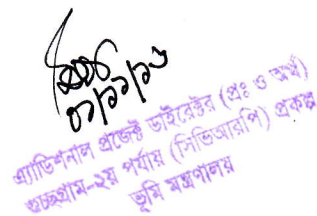 ০৮/১১/১৬
এ্যাডিশনাল প্রজেক্ট ডাইরেক্টর (প্রঃ ও অর্থ)
গুচ্ছগ্রাম-২য় পর্যায় (সিভিআরপি) প্রকল্প
ভূমি মন্ত্রণালয়